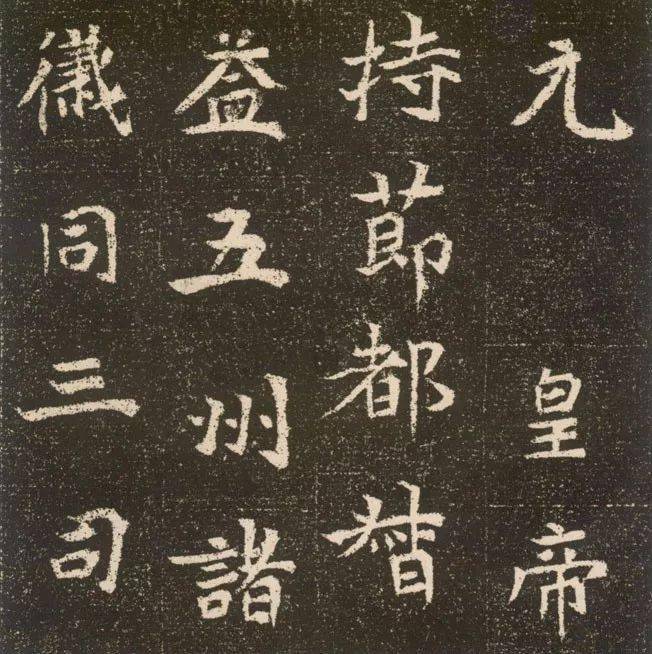 元 皇帝
持節都督
益五州諸
儀同三司